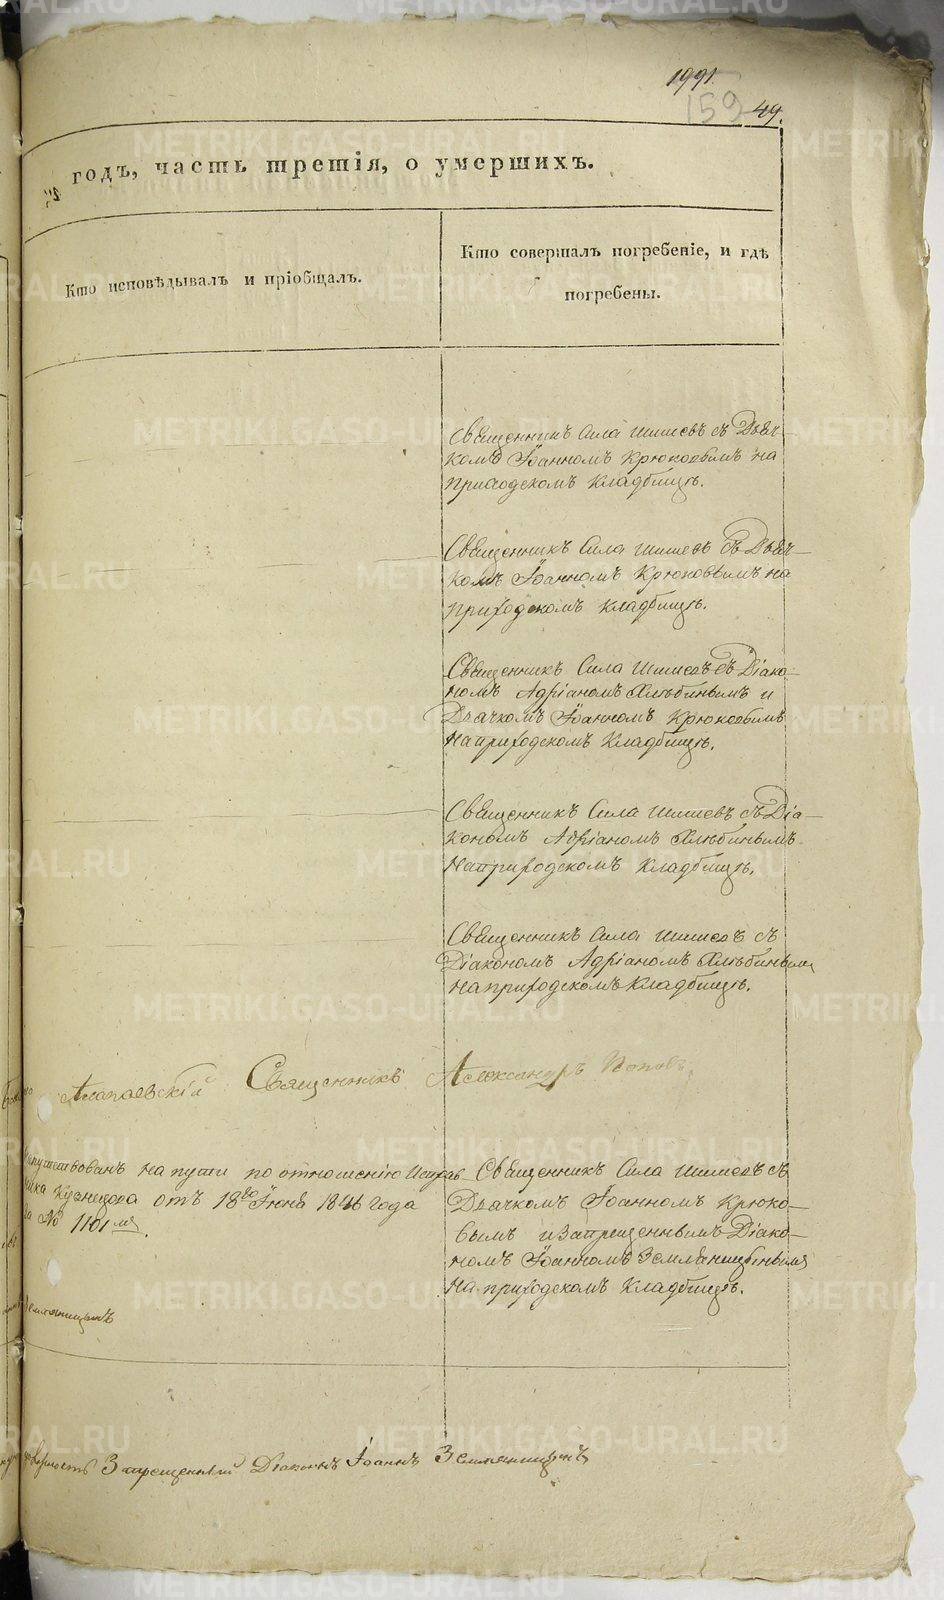 1991.
159 49.
годъ, часть третія, о умершихъ.
Кто исповѣдывалъ и пріобщалъ.
Кто совершалъ погребеніе, и гдѣ
погребены.
Священникъ Сила Шишевъ съ Дьяч-
комъ Іоанномъ Крюковымъ на
приходскомъ кладбищѣ.
Священникъ Сила Шишевъ съ Дьяч-
комъ Іоанномъ Крюковымъ на
приходскомъ кладбищѣ.
Священникъ Сила Шишевъ съ Діако-
номъ Адріаномъ Хлѣбинымъ и
Дьячкомъ Іоанномъ Крюковымъ
на приходскомъ кладбищѣ.
Священникъ Сила Шишевъ съ Діа-
кономъ Адріаномъ Хлѣбинымъ
на приходскомъ кладбищѣ.
Священникъ Сила Шишевъ съ
Діакономъ Адріаномъ Хлѣбинымъ
на приходскомъ кладбищѣ.
Алапаевскій Священникъ Александръ Поповъ.
на пути по отношенію Исправ-
ника Кузнецова отъ 18го Іюня 1846 года
за № 1101мъ.
Священникъ Сила Шишевъ съ
Дьячкомъ Іоанномъ Крюко-
вымъ и запрещеннымъ Діако-
номъ Іоанномъ Земляницынымъ
на приходскомъ кладбищѣ.
Земляницынъ
Запрещенный Діаконъ Іоаннъ Земляницынъ
METRIKI.GASO-URAL.RU